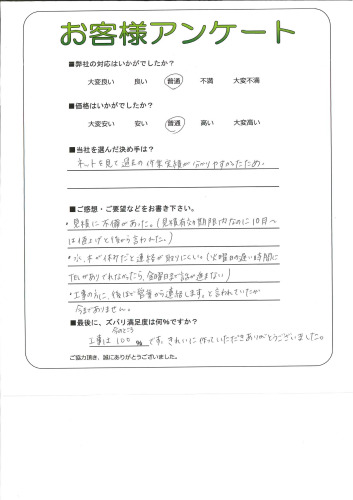 お客様アンケート
■弊社の対応はいかがでしたか？
大変良い 良い 普通 不満 大変不満
■価格はいかがでしたか？
大変安い 安い 普通 高い 大変高い
■当社を選んだ決め手は？
ネットを見て過去の作業実績が分かりやすかったため。
■ご感想・ご要望などをお書き下さい。
・見積に不備があった。(見積有効期限内なのに10月〜
は値上げと後から言われた。)
・水、木が休みだと連絡が取りにくい。(火曜日の遅い時間に
TELがありでれなかったら、金曜日まで話が進まない)
・工事の方に、後ほど営業から連絡します。と言われていたが
今まであり��せん。
■最後に、ズバリ満足度は何％ですか？
今のところ
工事は100％です。きれいに作っていただきありがとうございました。
ご協力頂き、誠にありがとうございました。